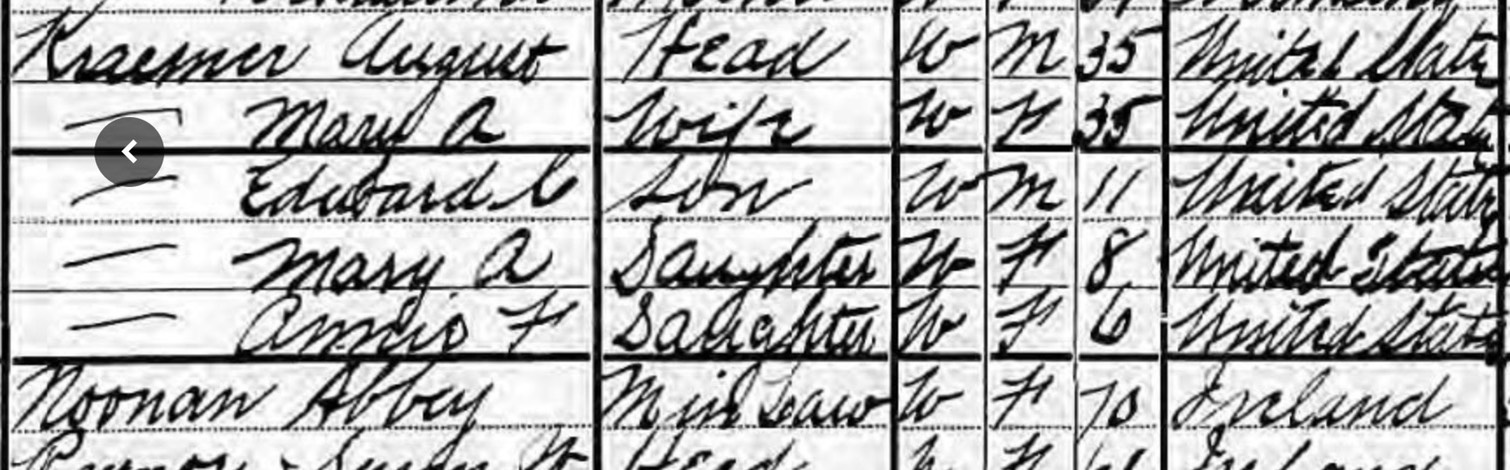 Kraemer August Head W M 35 United States
— Mary A Wife W F 35 United States
— Edward C Son W M 11 United States
— Mary A Daughter W F 8 United States
— Annie F Daughter W F 6 United States
Noonan Abbey M in Law W F 70 Ireland
Head